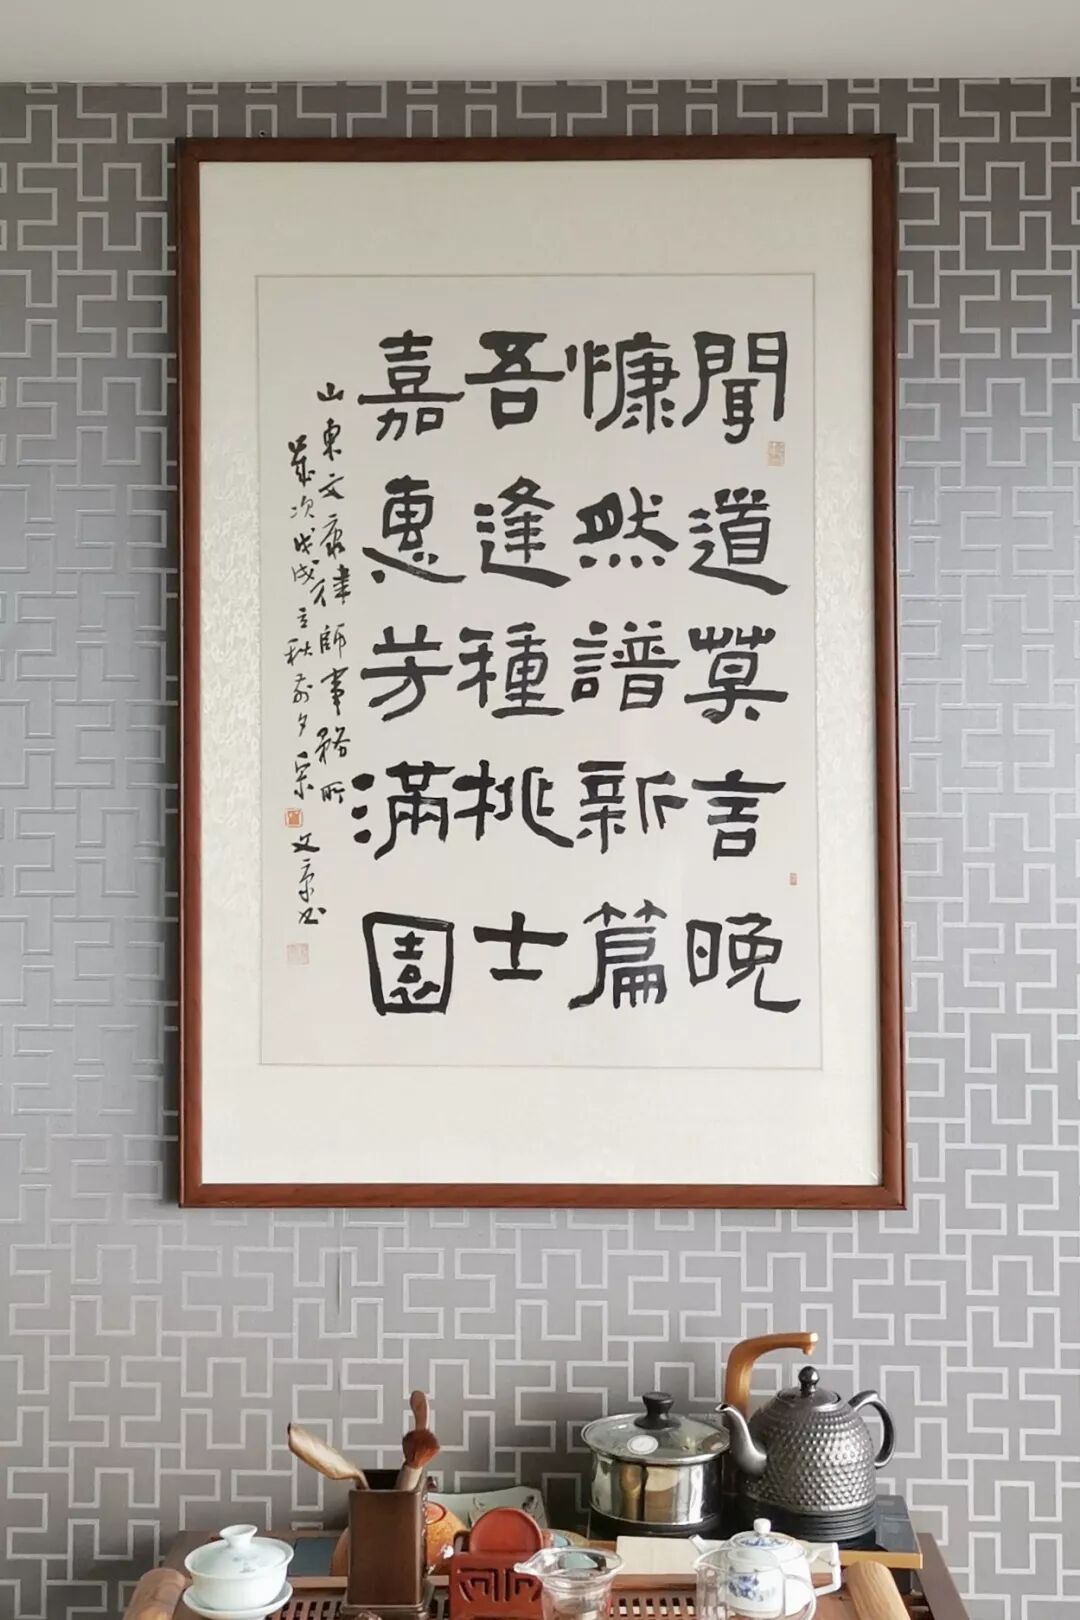 聞道莫言晚
慷然譜新篇
吾逢種桃士
嘉惠芳滿園
山東文康律師事務所
歲次戊戌立秋前夕宋文京书